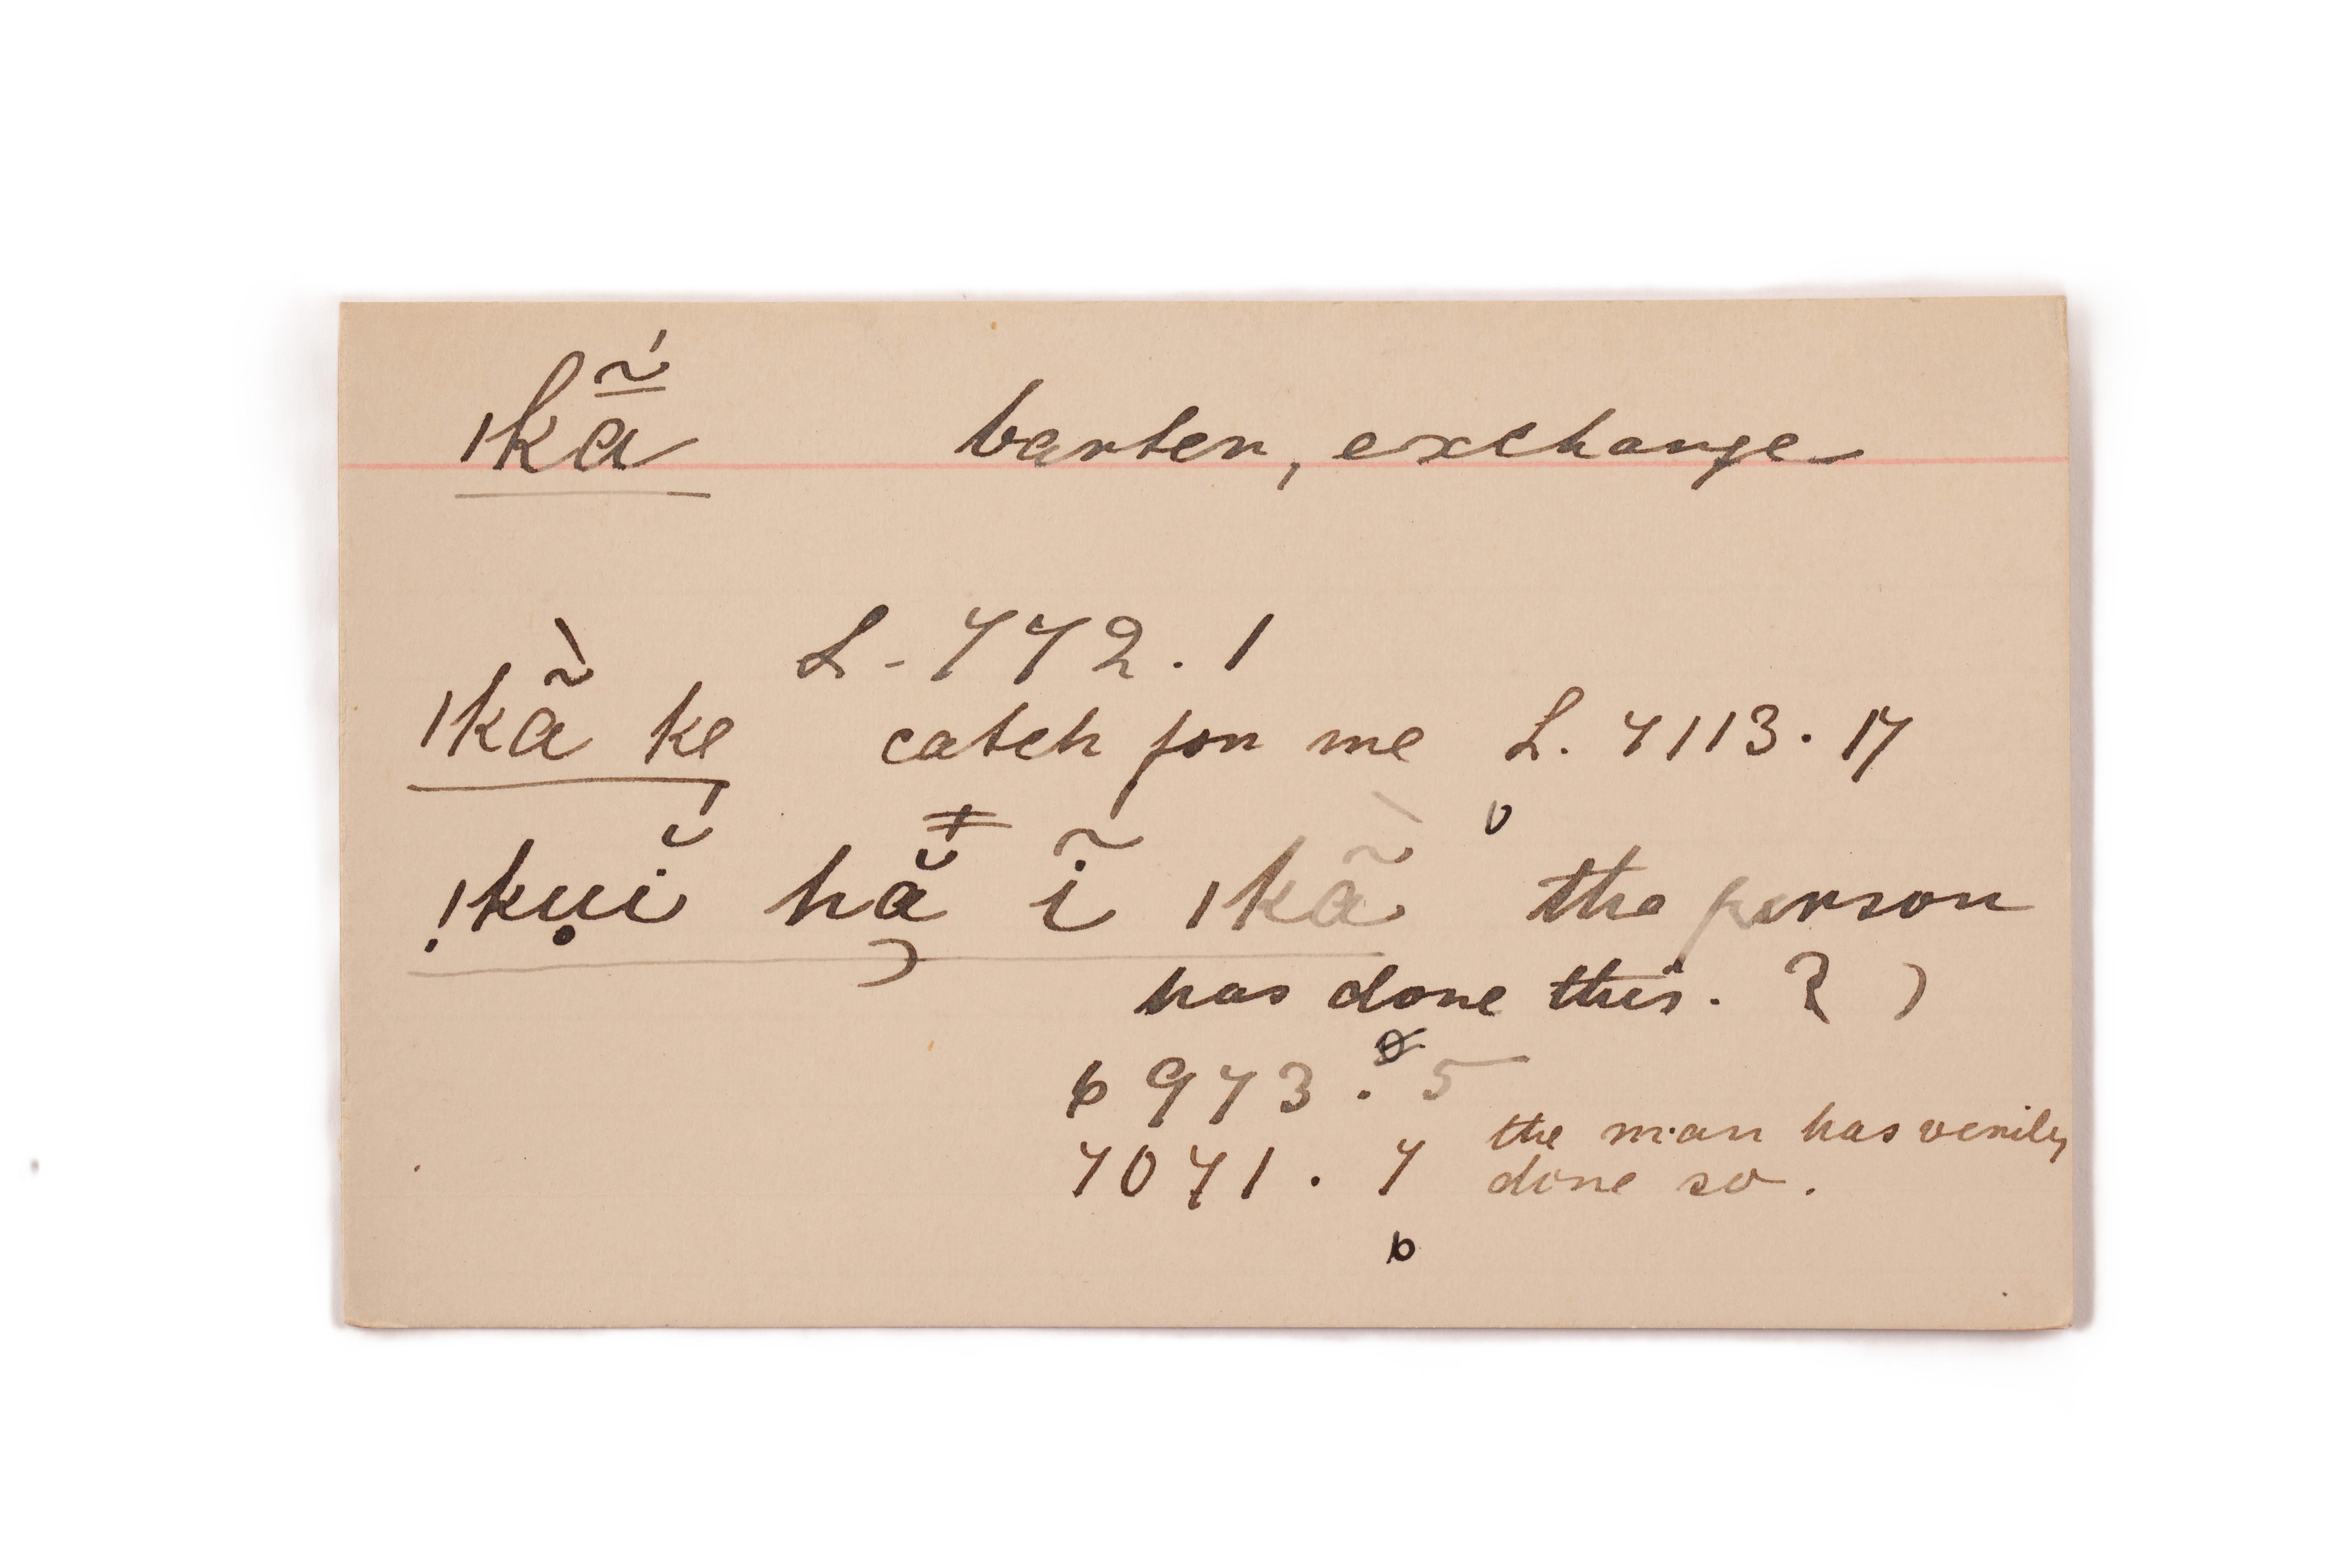 ıkã̱́ barter, exchange
L - 772 . 1
ıkã̀ ke catch for me L. 7113 . 17
!kụĭ hă ĩ ıkã̀ the person
has done this. ? )
6973 . 5
7071 . 7 the man has verily
done so .
b